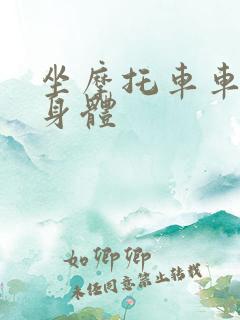 坐摩托車車
身體
如卿卿
未经同意禁止转载